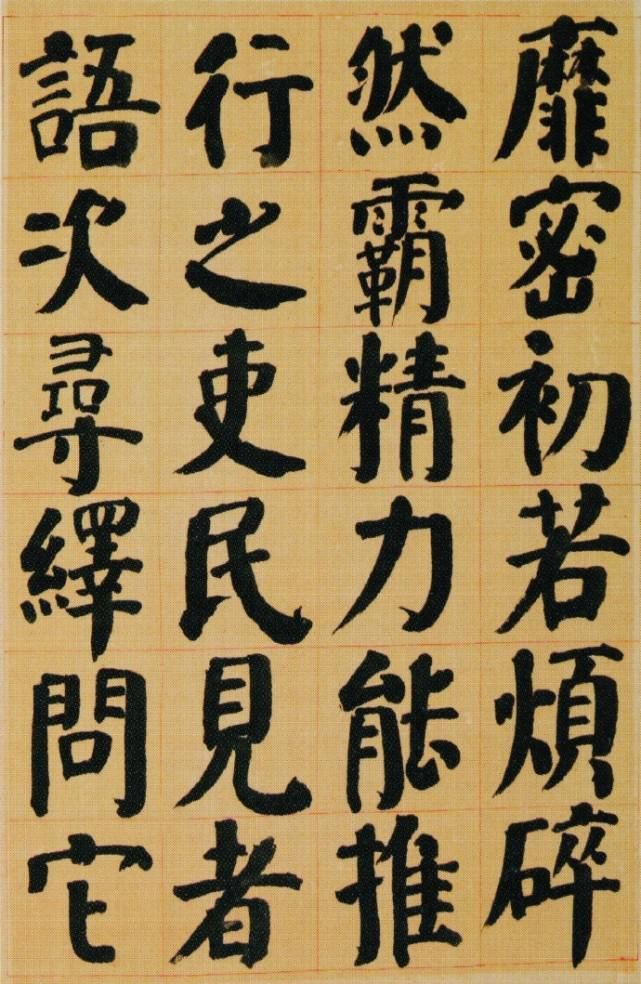 靡密初若煩碎
然霸精力能推
行之吏民見者
語次尋繹問它